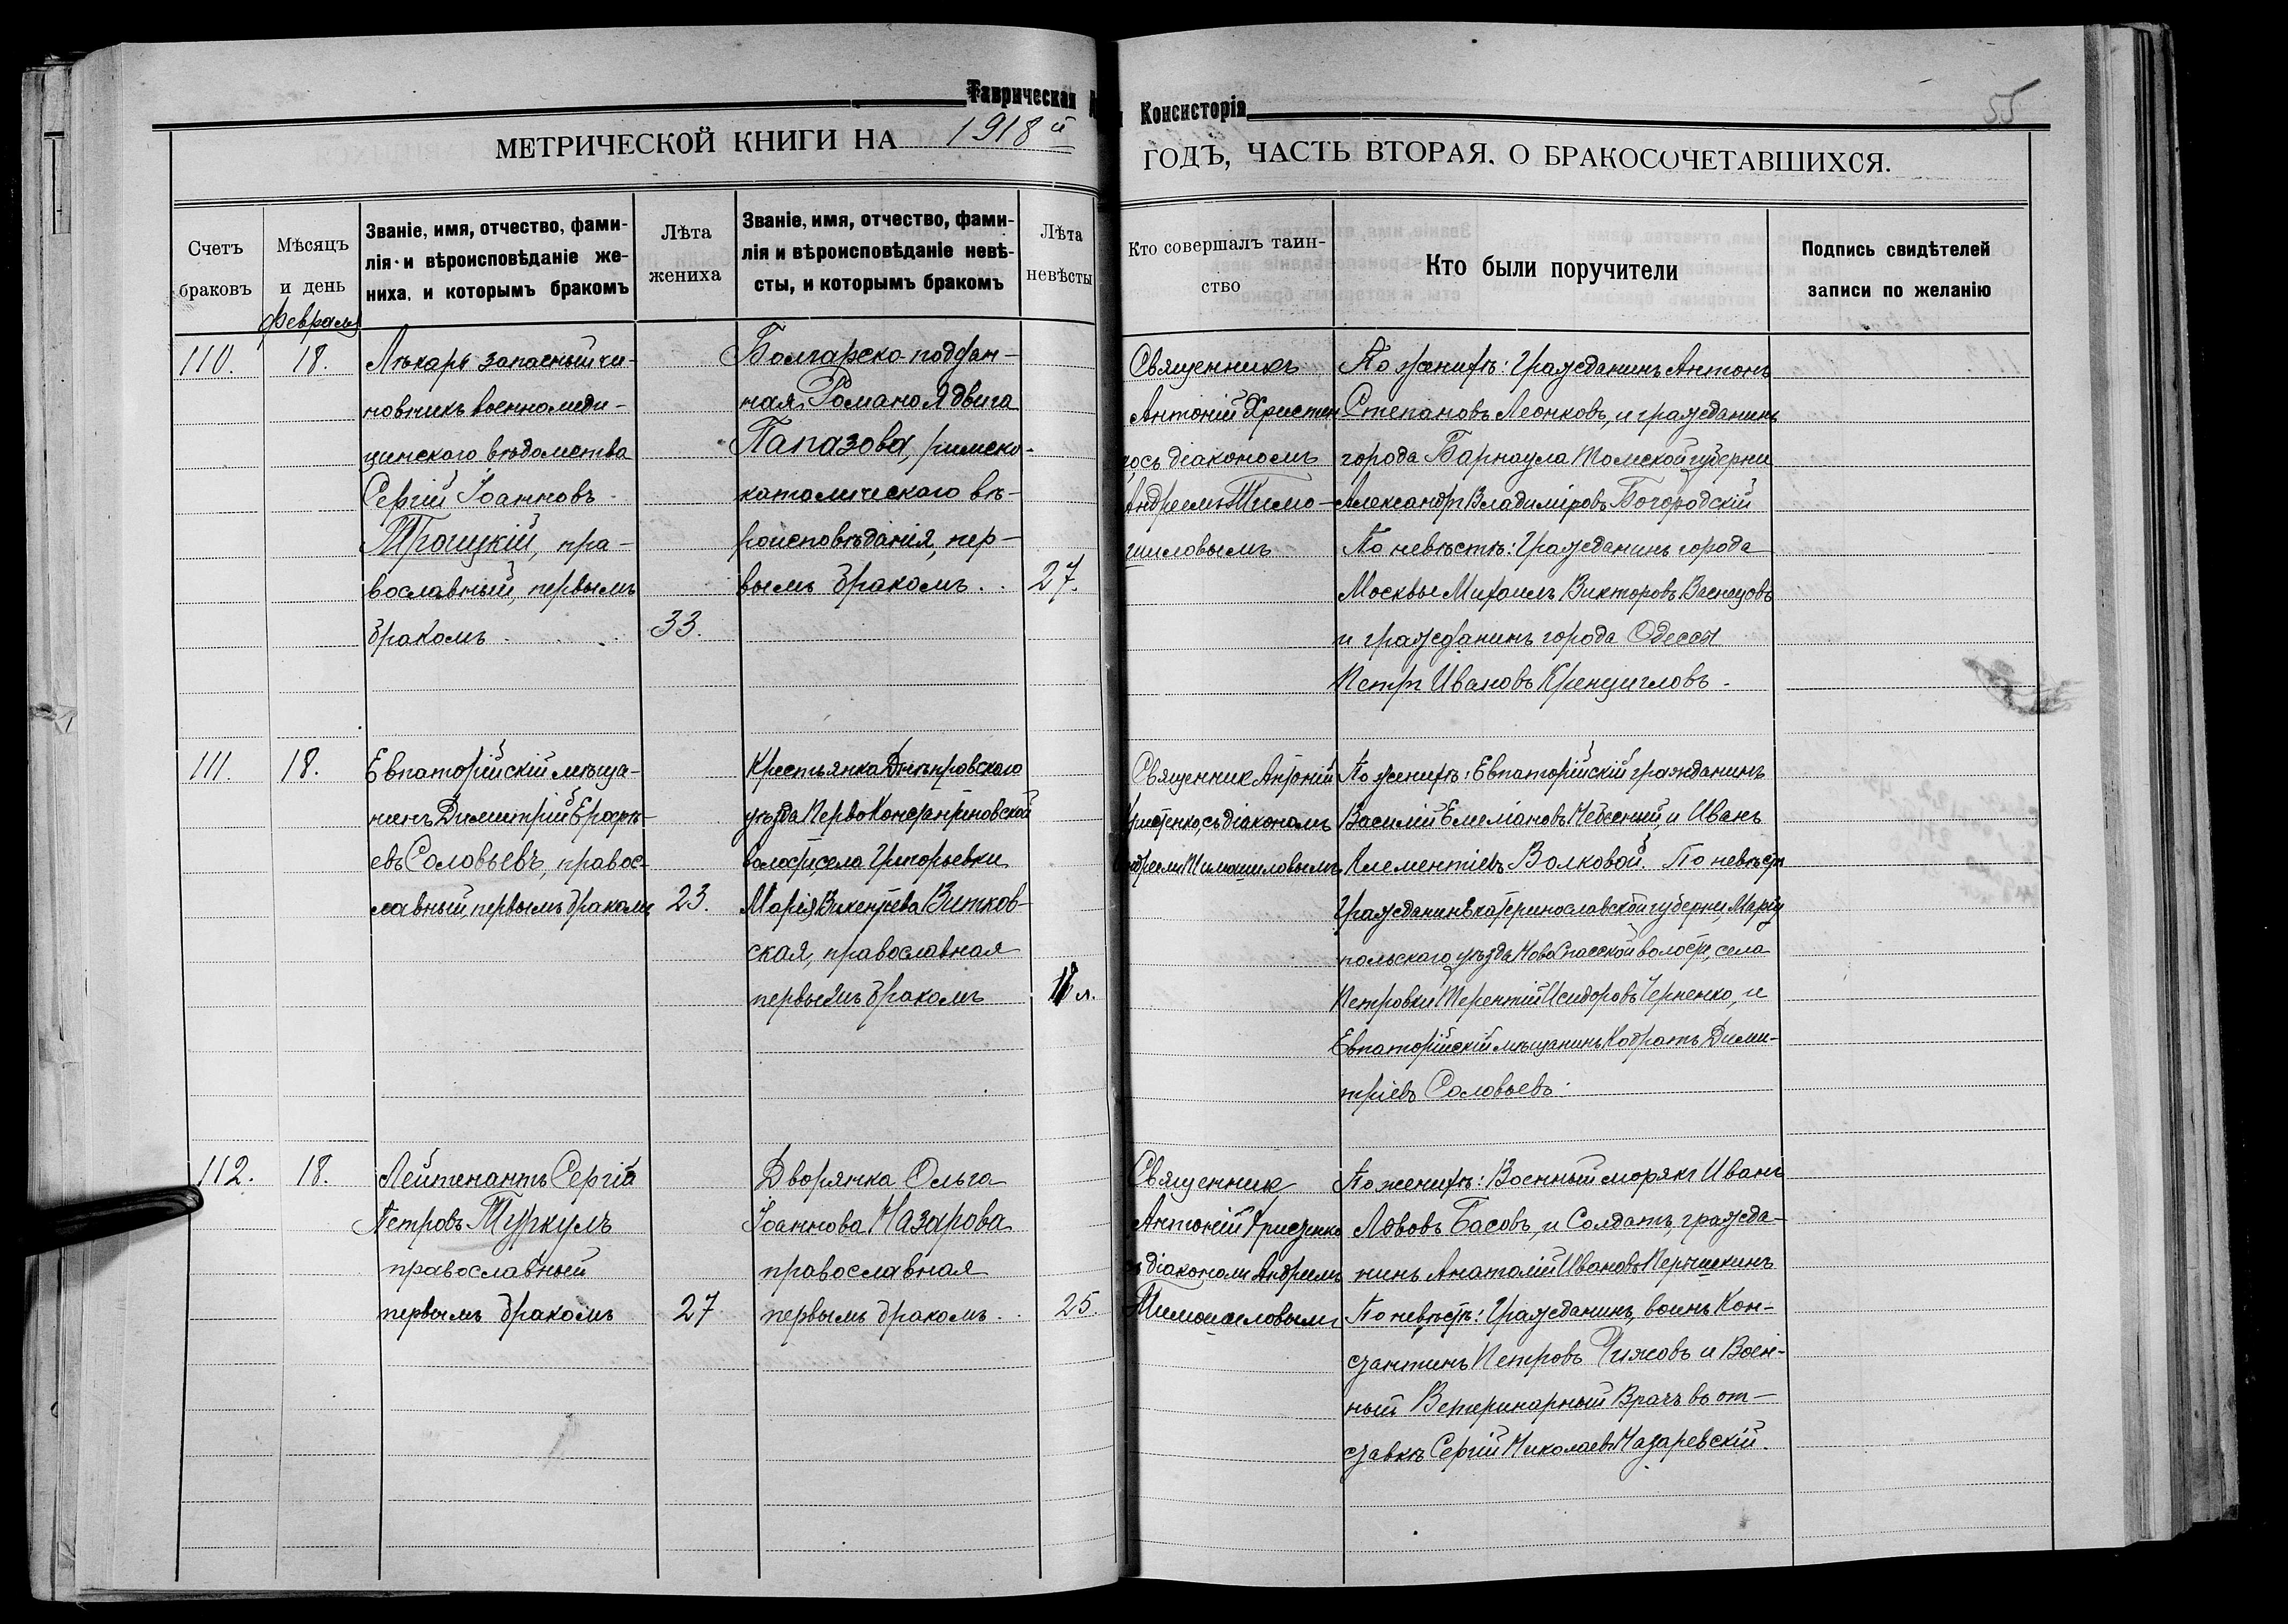 Таврическая
Консисторія
55
МЕТРИЧЕСКОЙ КНИГИ НА 1918й
ГОДЪ, ЧАСТЬ ВТОРАЯ, О БРАКОСОЧЕТАВШИХСЯ.
Счетъ
браковъ
Мѣсяцъ
и день
Званіе, имя, отчество, фами-
лія и вѣроисповѣданіе же-
ниха, и которымъ бракомъ
Лѣта
жениха
Званіе, имя, отчество, фами-
лія и вѣроисповѣданіе невѣ-
сты, и которымъ бракомъ
Лѣта
невѣсты
Кто совершалъ таин-
ство
Кто были поручители
Подпись свидѣтелей
записи по желанію
февраля
110.
18.
Лѣкарь запасный чи-
новникъ военно меди-
цинскаго вѣдомства
Сергій Іоанновъ
Троицкій, пра-
вославный, первымъ
бракомъ
33.
Болгарско-поддан-
ная Романа Ядвига
Папазова, римско-
католическаго вѣ-
роисповѣданія, пер-
вымъ бракомъ.
27.
Священникъ
Антоній Христен
ко съ діакономъ
Андреемъ Тимо-
шиловымъ
По женихѣ: Гражданинъ Антонъ
Степановъ Леонковъ, и гражданинъ
города Барнаула Томской губерни
Александръ Владиміровъ Богородскій
По невѣстѣ: Гражданинъ города
Москвы Михаилъ Викторовъ Васнецовъ
и гражданинъ города Одессы
Петръ Ивановъ
111.
18.
Евпаторійскій мѣща-
нинъ Димитрій
евъ Соловьевъ, правос-
лавный первымъ бракомъ
23.
Крестьянка Днѣпровскаго
уѣзда Перво Константиновской
волости, села Григорьевки
Марія Викентьева Витков-
ская, православная
первымъ бракомъ
л.
Священник Антоній
Христенко, съ діакономъ
Андреем Тимошиловымъ
По женихѣ: Евпаторійскій гражданинъ
Василій Емеліановъ Небесный, и Иванъ
Клементіевъ Волковой. По невѣстѣ
Гражданинъ Екатеринославской губерни, Маріу
польскаго уѣзда Ново Спасской волости, села
Петровки Терентій Исидоровъ Черненко, и
Евпаторійскій мѣщанинъ Кодратъ Дими-
тріевъ Соловьевъ.
112.
18.
Лейтенантъ Сергій
Петровъ Туркулъ
православный
первымъ бракомъ
27
Дворянка Ольга
Іоаннова Назарова
православная
первымъ бракомъ.
25.
Священник
Антоній Христенко
съ діакономъ Андреемъ
Тимошиловымъ
По женихѣ: Военный морякъ Иванъ
Львовъ Басовъ, и Солдатъ, гражда-
нинъ Анатолій Ивановъ
По невѣстѣ: Гражданинъ, воинъ Кон-
стантинъ Петровъ Чижовъ и Воен-
ный Ветеринарный Врачъ въ от-
ставкѣ Сергій Николаевъ Назаревскій.